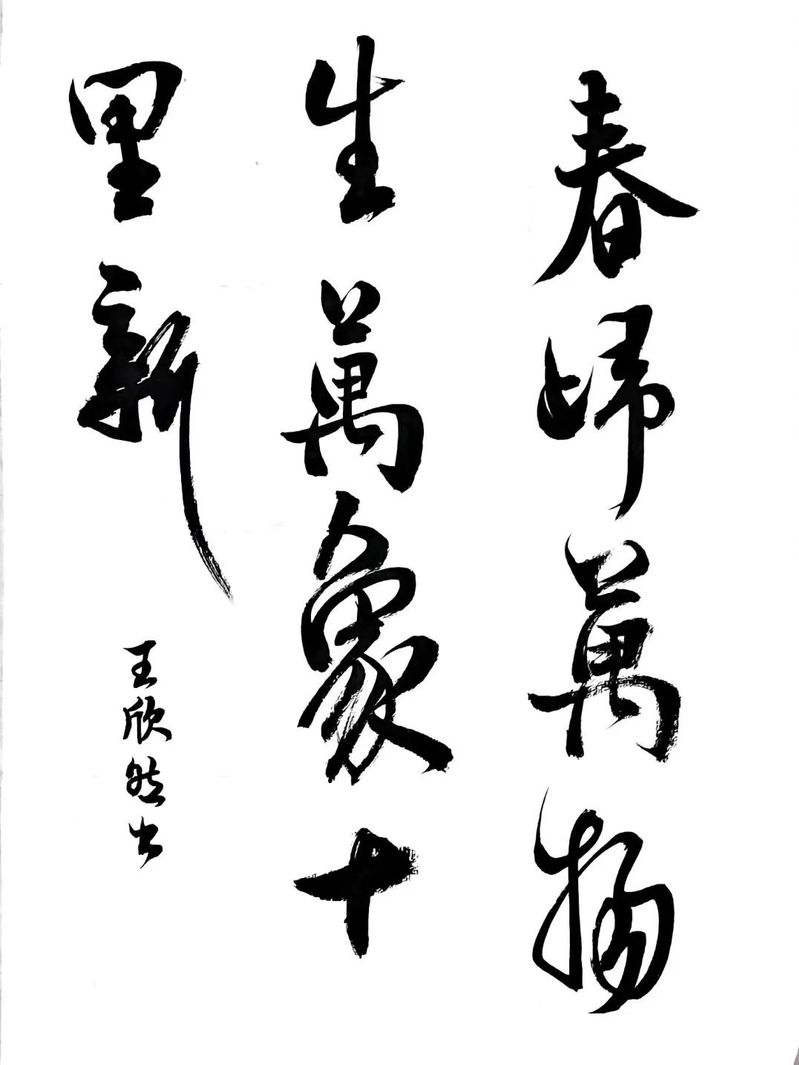 春歸萬物
生萬象十
里新
王欣然书